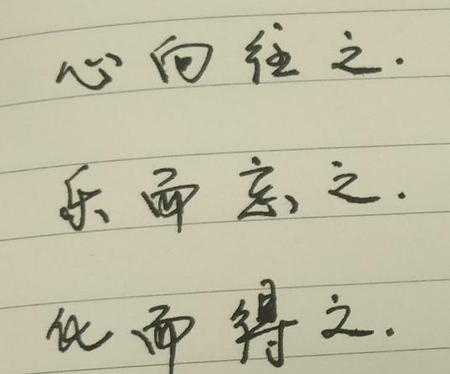 心向往之.
乐而忘之.
化而得之.